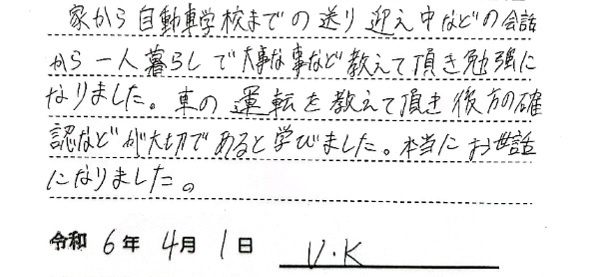 家から自動車学校までの送り迎え中などの会話
から一人暮らしで大事な事など教えて頂き勉強に
なりました。車の運転を教えて頂き後方の確
認などが大切であると学びました。本当にお世話
になりました。
令和 6年 4月 1日 V.K